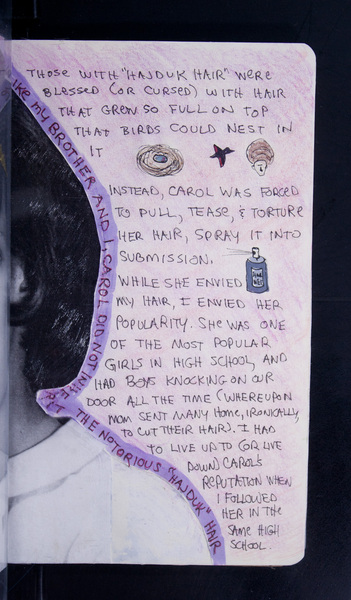 THOSE WITH "HAJDUK HAIR" WERE
BLESSED (OR CURSED) WITH HAIR
THAT GREW SO FULL ON TOP
THAT BIRDS COULD NEST IN
IT
INSTEAD, CAROL WAS FORCED
TO PULL, TEASE, & TORTURE
HER HAIR, SPRAY IT INTO
SUBMISSION.
WHILE SHE ENVIED
MY HAIR, I ENVIED HER
POPULARITY. SHE WAS ONE
OF THE MOST POPULAR
GIRLS IN HIGH SCHOOL, AND
HAD BOYS KNOCKING ON OUR
DOOR ALL THE TIME (WHEREUPON
MOM SENT MANY HOME, IRONICALLY,
TO CUT THEIR HAIR). I HAD
TO LIVE UP TO (OR LIVE
DOWN) CAROL'S
REPUTATION WHEN
I FOLLOWED
HER IN THE
SAME HIGH
SCHOOL.
LIKE MY BROTHER AND I, CAROL DID NOT INHERIT THE NOTORIOUS "HAJDUK" HAIR